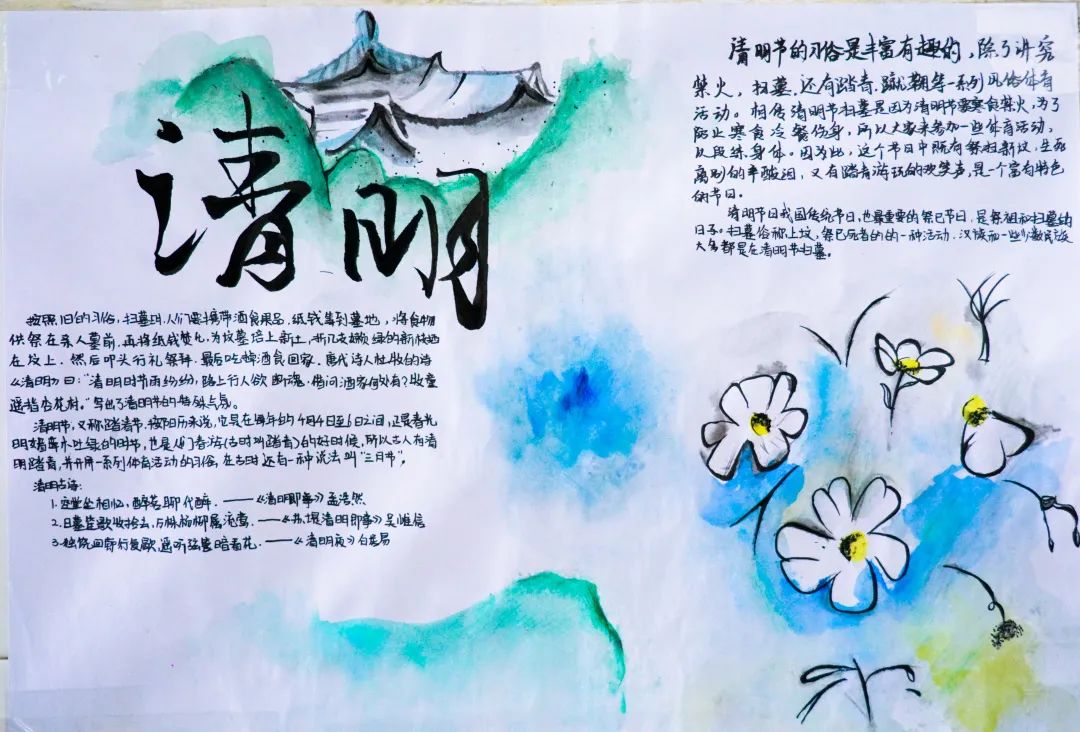 清明
清明节的习俗是丰富有趣的,除了讲究
禁火,扫墓,还有踏青,蹴鞠等一系列风俗体育
活动。相传清明节扫墓是因为清明节要寒食禁火,为了
防止寒食冷餐伤身,所以大家来参加一些体育活动,
以段练身体。因为此,这个节日中既有祭扫新坟,生死
离别的辛酸泪,又有踏青游玩的欢笑声,是一个富有特色
的节日。
清明节日我国传统节日,也最重要的祭已节日,是祭祖和扫墓的
日子。扫墓俗称上坟,祭已死者的的一种活动.汉族和一些少数民族
大多都是在清明节扫墓。
按照旧的习俗,扫墓时,人们要携带酒食果品,纸钱等到墓地,将食物
供祭在亲人墓前,再将纸钱焚化,为坟墓培上新土,折几支嫩绿的新枝插
在坟上,然后叩头行礼祭拜,最后吃掉酒食回家.唐代诗人杜牧的诗
《清明》曰:“清明时节雨纷纷,路上行人欲断魂。借问酒家何处有?牧童
遥指杏花村。”写出了清明节的特殊气氛。
清明节,又称踏青节,按阳历来说,它是在每年的4月4日至6日之间,正是春光
明媚草木吐绿的时节,也是人们春游(古时叫踏青)的好时候,所以古人有清
明踏青,并开展一系列体育活动的习俗,在古时还有一种说法叫“三月节”。
清明古诗:
1.空堂坐相忆,酌茗聊代醉.——《清明即事》孟浩然
2.日暮笙歌收拾去,万株杨柳属流莺.——《苏堤清明即事》吴惟信
3.独绕回廊行复歇,遥听弦管暗看花.——《清明夜》白居易